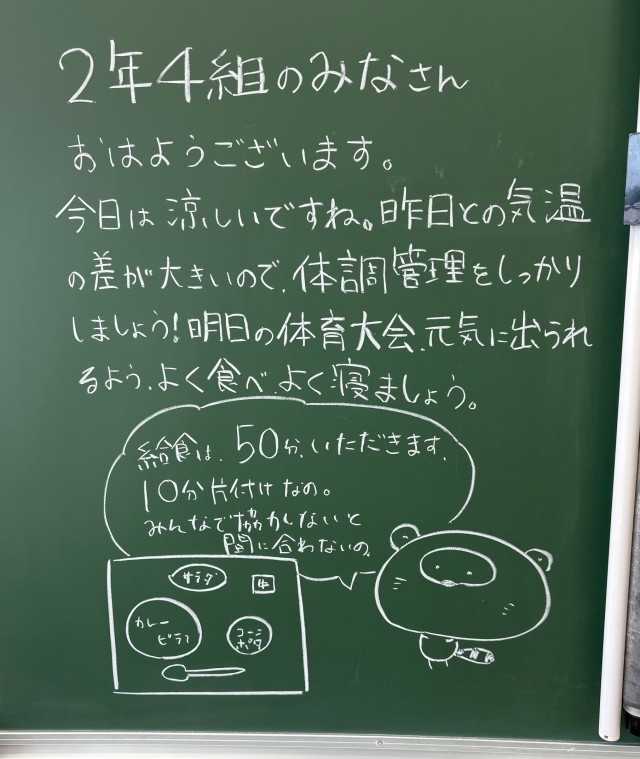 2年4組のみなさん
おはようございます。
今日は涼しいですね。昨日との気温
の差が大きいので、体調管理をしっかり
しましょう!明日の体育大会、元気に出られ
るよう、よく食べ、よく寝ましょう。
給食は、50分、いただきます、
10分片付けなの。
みんなで協力しないと
間に合わないの。
サラダ
牛
カレー
ピラフ
コーン
ポタ